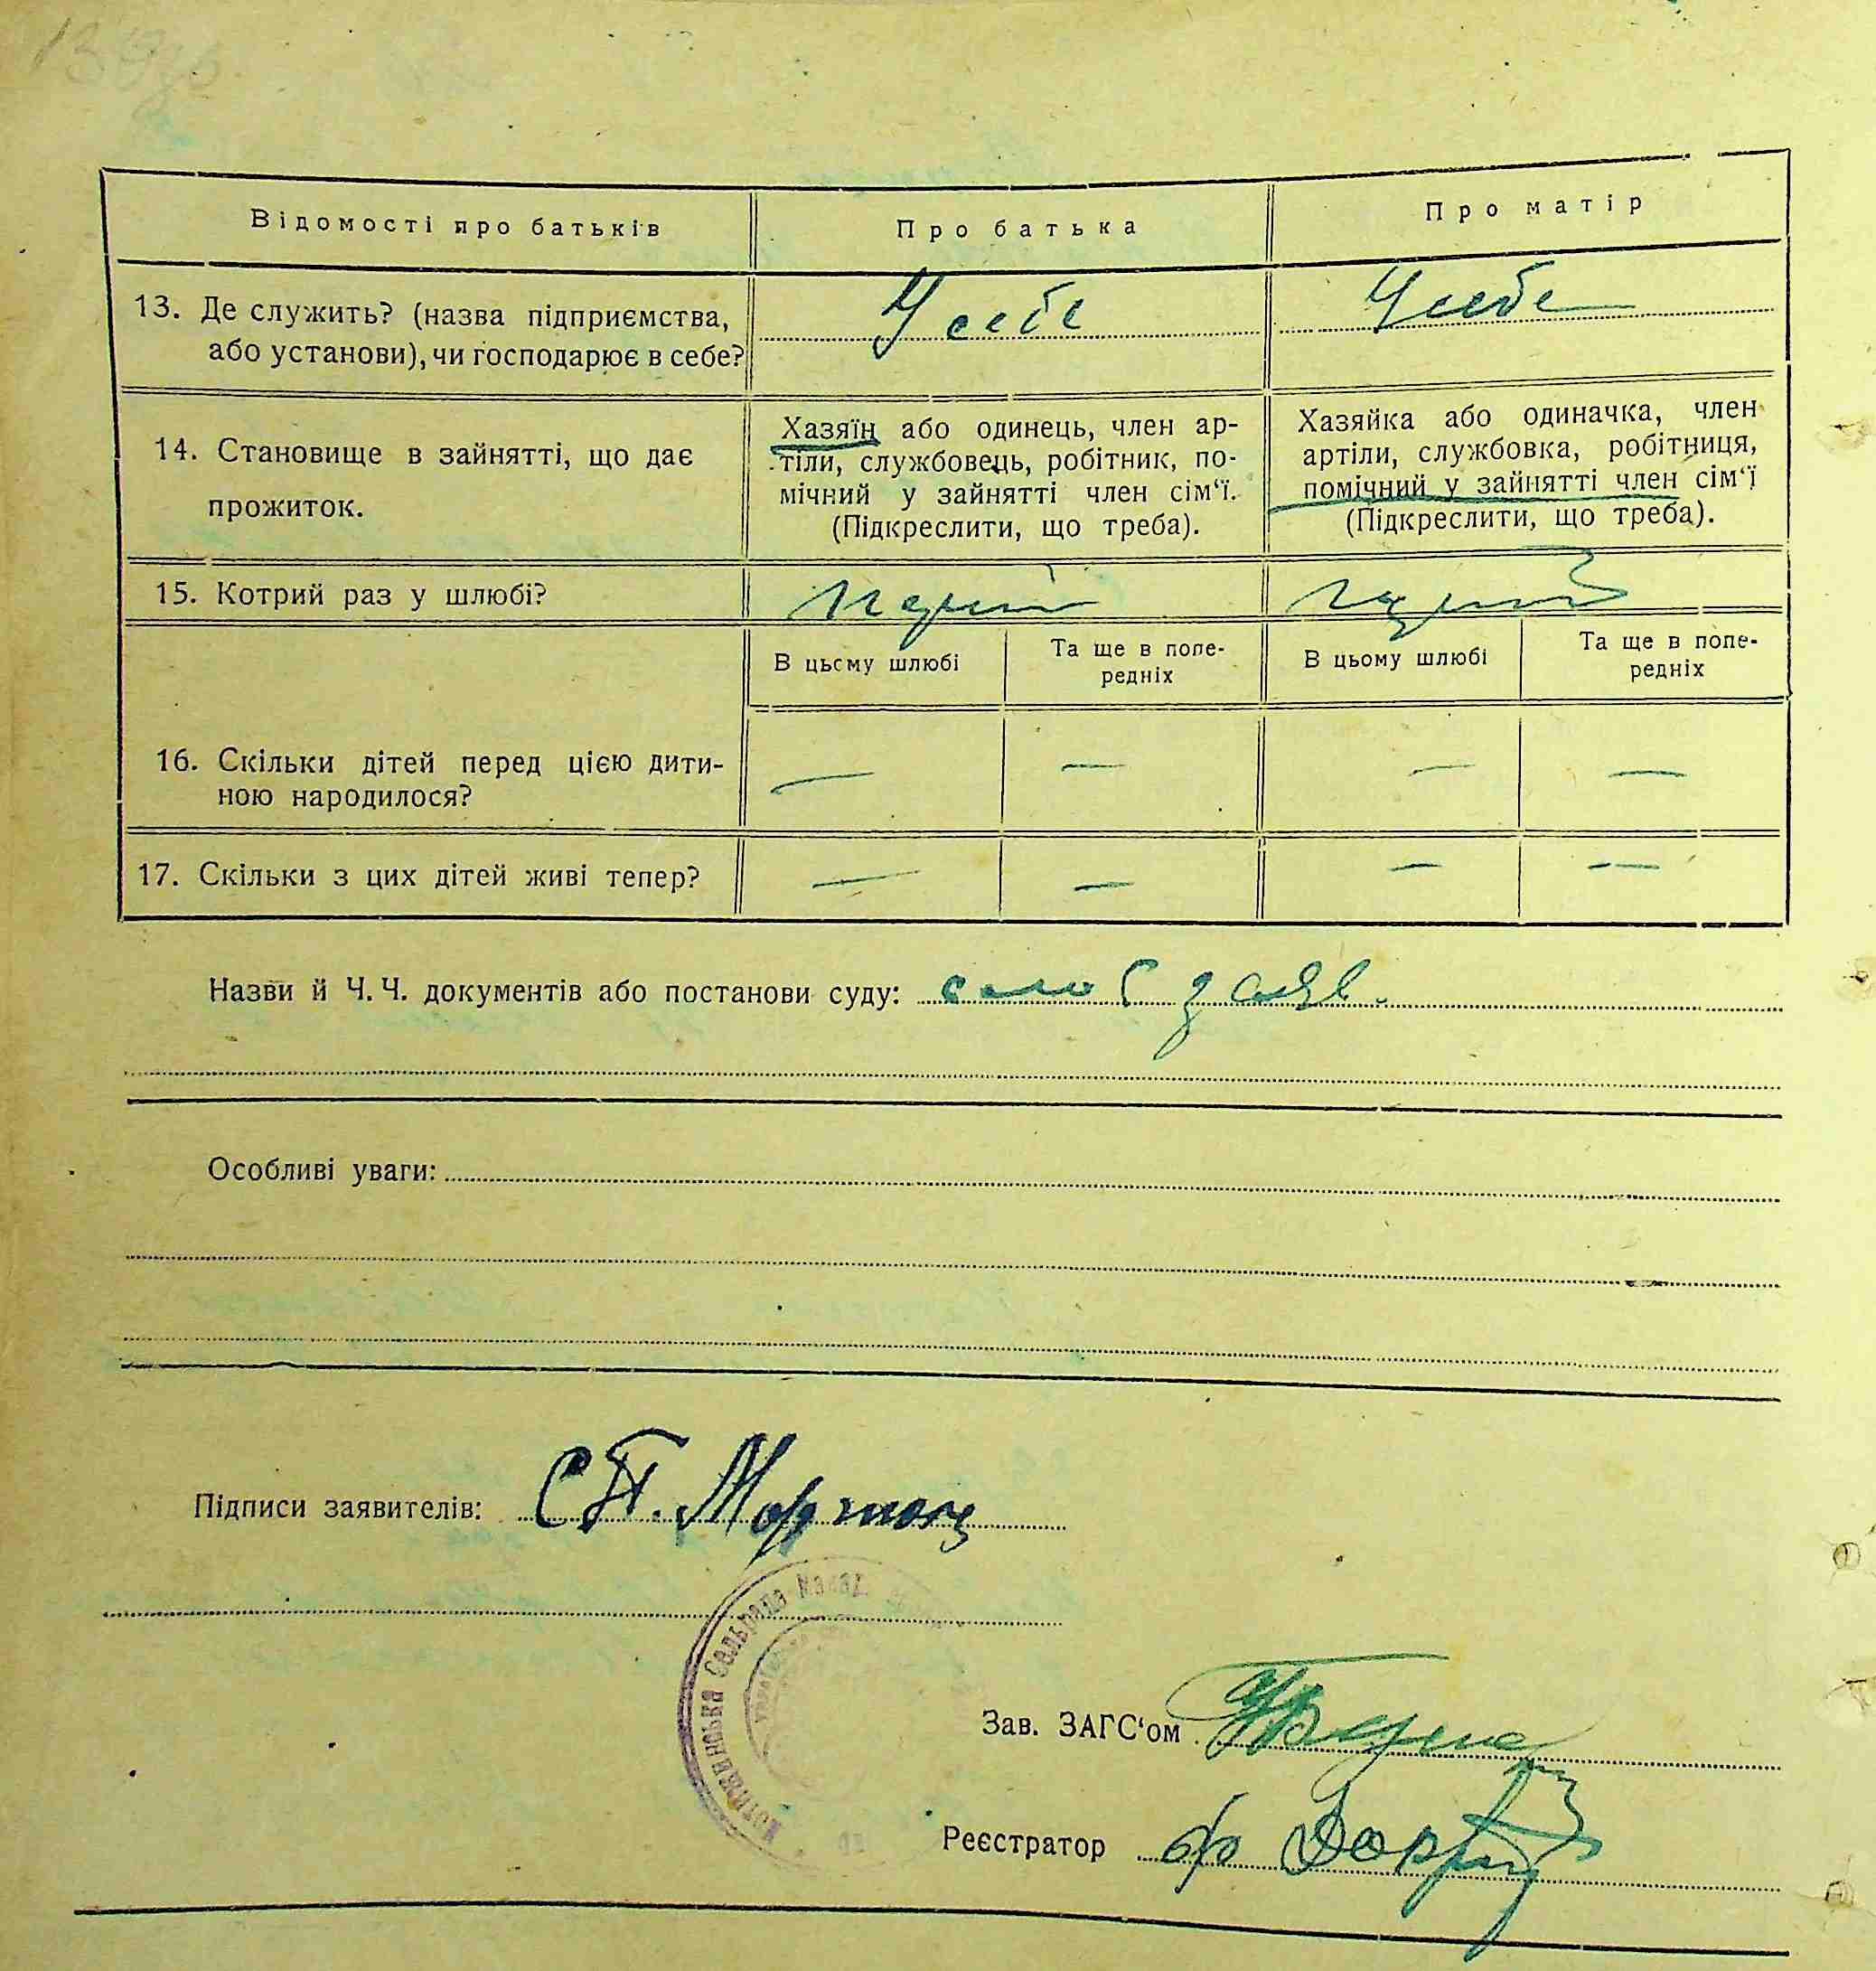 Відомості про батьків
Про батька
Про матір
13. Де служить? (назва підприємства,
або установи), чи господарює в себе?
У себе
У себе
14. Становище в зайнятті, що дає
прожиток.
Хазяїн або одинець, член ар-
тіли, службовець, робітник, по-
мічний у зайнятті член сім‘ї.
(Підкреслити, що треба).
Хазяйка або одиначка, член
артіли, службовка, робітниця,
помічний у зайнятті член сім‘ї
(Підкреслити, що треба).
15. Котрий раз у шлюбі?
В цьому шлюбі
Та ще в попе-
редніх
В цьому шлюбі
Та ще в попе-
редніх
16. Скільки дітей перед цією дити-
ною народилося?
— — — —
17. Скільки з цих дітей живі тепер?
— — — —
Назви й Ч. Ч. документів або постанови суду:
Особливі уваги:
Підписи заявителів: С П.
Сельрада
Зав. ЗАГС‘ом
Реєстратор